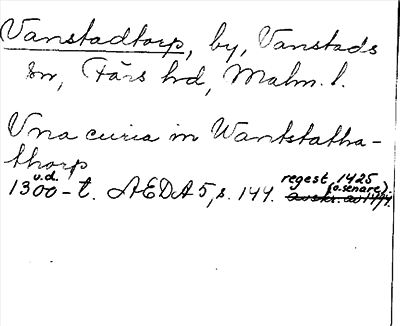 Vanstadtorp, by, Vanstads
sn, Färs hd, Malm. l.
Vna curia in Wantstatha-
thorp
u.d.
1300-t. AEDA 5, s. 144. regest 1425
(o. senare).
avskr. av 1494.